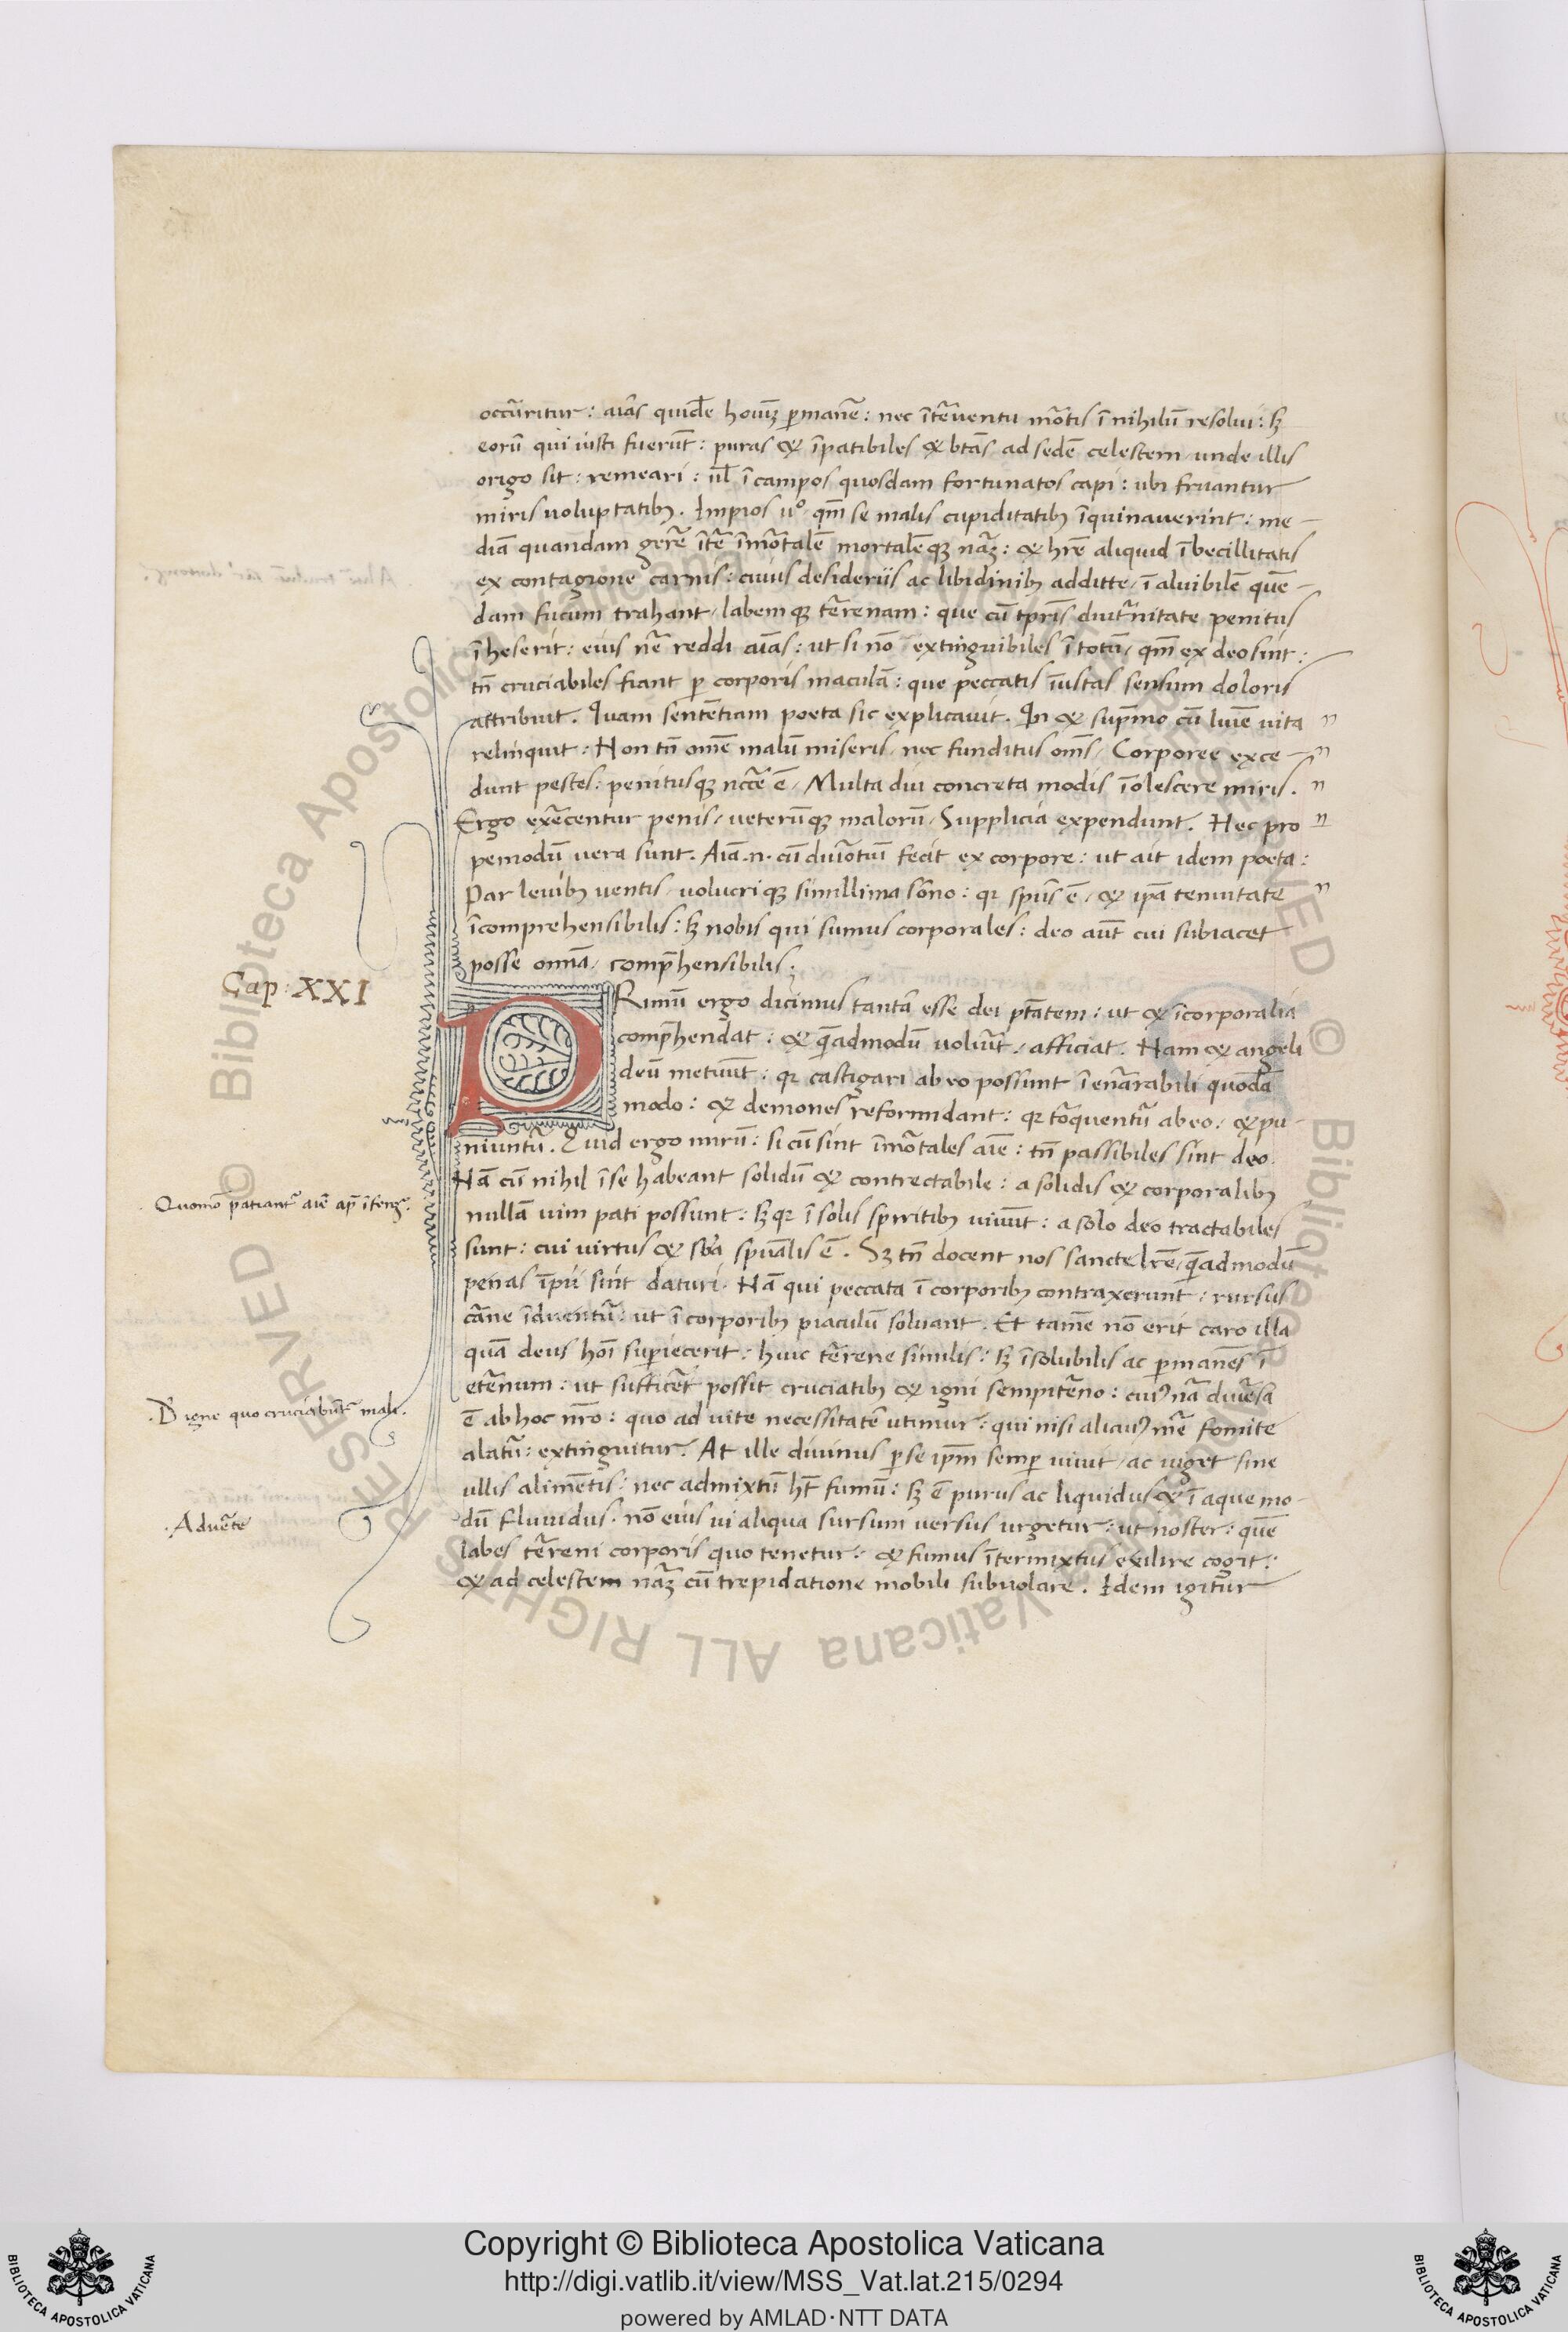 occũritur: aĩas quidẽ hoĩuꝫ ꝑmanẽ: nec ĩteruentu mõtis ĩ nihilũ resolui: sꝫ
eorũ qui iusti fuerũt: puras & ĩpatibiles & btãs ad sedẽ celestem unde illis
origo sit: remeari: ul̃ ĩ campos quosdam fortunatos capi: ubi fruantur
miris uoluptatibꝫ. Impios uº qm̃ se malis cupiditatibꝫ ĩquinauerint: me-
diã quandam gerẽ ĩtẽ ĩmõtalẽ mortalẽqꝫ nãꝫ: & hrẽ aliquid ĩbecillitatis
ex contagione carnis: cuius desideriis ac libidinibꝫ additte, ĩ aluibilẽ quẽ-
dam fucum trahant, labemqꝫ tẽrenam: que cũ tpris̃ diut̃nitate penitus
ĩheserit: eius nẽ reddi aĩas: ut si nõ extinguibiles ĩ totũ, qm̃ ex deo sint:
tñ cruciabiles fiant ꝑ corporis maculã: que peccatis ĩustas sensum doloris
attribuit. Quam sententiam poeta sic explicauit. Qn̄ & supmo cũ luĩe uita "
relinquit: Non tñ omẽ malũ miseris, nec funditus oms̃, Corporee exce- "
dunt pestes: penitusqꝫ nccẽ ẽ, Multa diu concreta modis ĩolescere miris. "
Ergo exẽcentur penis, ueterũqꝫ malorũ, Supplicia expendunt. Hec pro "
pemodũ uera sunt. Aĩa .n. cũ diuõtiũ fecit ex corpore: ut ait idem poeta:
Par leuibꝫ uentis, uolucriqꝫ simillima sõno: qꝛ spũs ẽ, & ipã tenuitate "
ĩcomprehensibilis: sꝫ nobis qui sumus corporales: deo aũt cui subiacet
posse omnã, comp̃hensibilis.
Cap: XXI
PRimũ ergo dicimus tantã esse dei ptãtem: ut & ĩcorporalia
comp̃hendat: & q̃admodũ uoluĩt, afficiat. Nam & angeli
deũ metuũt: qꝛ castigari ab eo possunt ĩenãrabili quodã
modo: & demones reformidant: qꝛ tõquentũ ab eo: & pu-
niuntũ. Quid ergo mirũ: si cũ sint ĩmõtales aĩe: tñ passibiles sint deo.
Nã cũ nihil ĩ se habeant solidũ & contrectabile: a solidis & corporalibꝫ
Quomõ patiant᷑ aĩe
nullã uim pati possunt: sꝫ qꝛ ĩ solis spiritibꝫ uiuũt: a solo deo tractabiles
sunt: cui uirtus & sbã spũalis ẽ. Sꝫ tñ docent nos sancte lrẽ, q̃admodũ
penas ĩpii sint daturi. Nã qui peccata ĩ corporibꝫ contraxerunt: rursus
cãne ĩduentũ: ut ĩ corporibꝫ piaculũ soluant. Et tamẽ nõ erit caro illa
quã deus hoĩ supiecerit: huic tẽrene similis: sꝫ ĩsolubilis ac ꝑmanẽs ĩ
etẽnum: ut sufficẽt possit cruciatibꝫ & igni sempitẽno: cuiꝰ nã diuẽsa
.D igne quo cruciabũt᷑ mali.
ẽ ab hoc nrõ: quo ad uite necessitatẽ utimur: qui nisi alicuiꝰ mẽ fomite
alatũ: extinguitur. At ille diuinus ꝑ se ipm̃ semꝑ uiuit, ac uiget sine
ullis alimẽtis: nec admixtũ ht̃ fumũ: sꝫ ẽ purus ac liquidus & ĩ aque mo-
.Aduẽte
dũ fluuidus. nõ eius ui aliqua sursum uersus urgetur: ut noster: quẽ
labes tẽreni corporis quo tenetur: & fumus ĩtermixtus exilire cogit:
& ad celestem nãꝫ cũ trepidatione mobili subuolare. Idem igitur
Copyright © Biblioteca Apostolica Vaticana
http://digi.vatlib.it/view/MSS_Vat.lat.215/0294
powered by AMLAD·NTT DATA
BIBLIOTECA APOSTOLICA VATICANA
BIBLIOTECA APOSTOLICA VATICANA